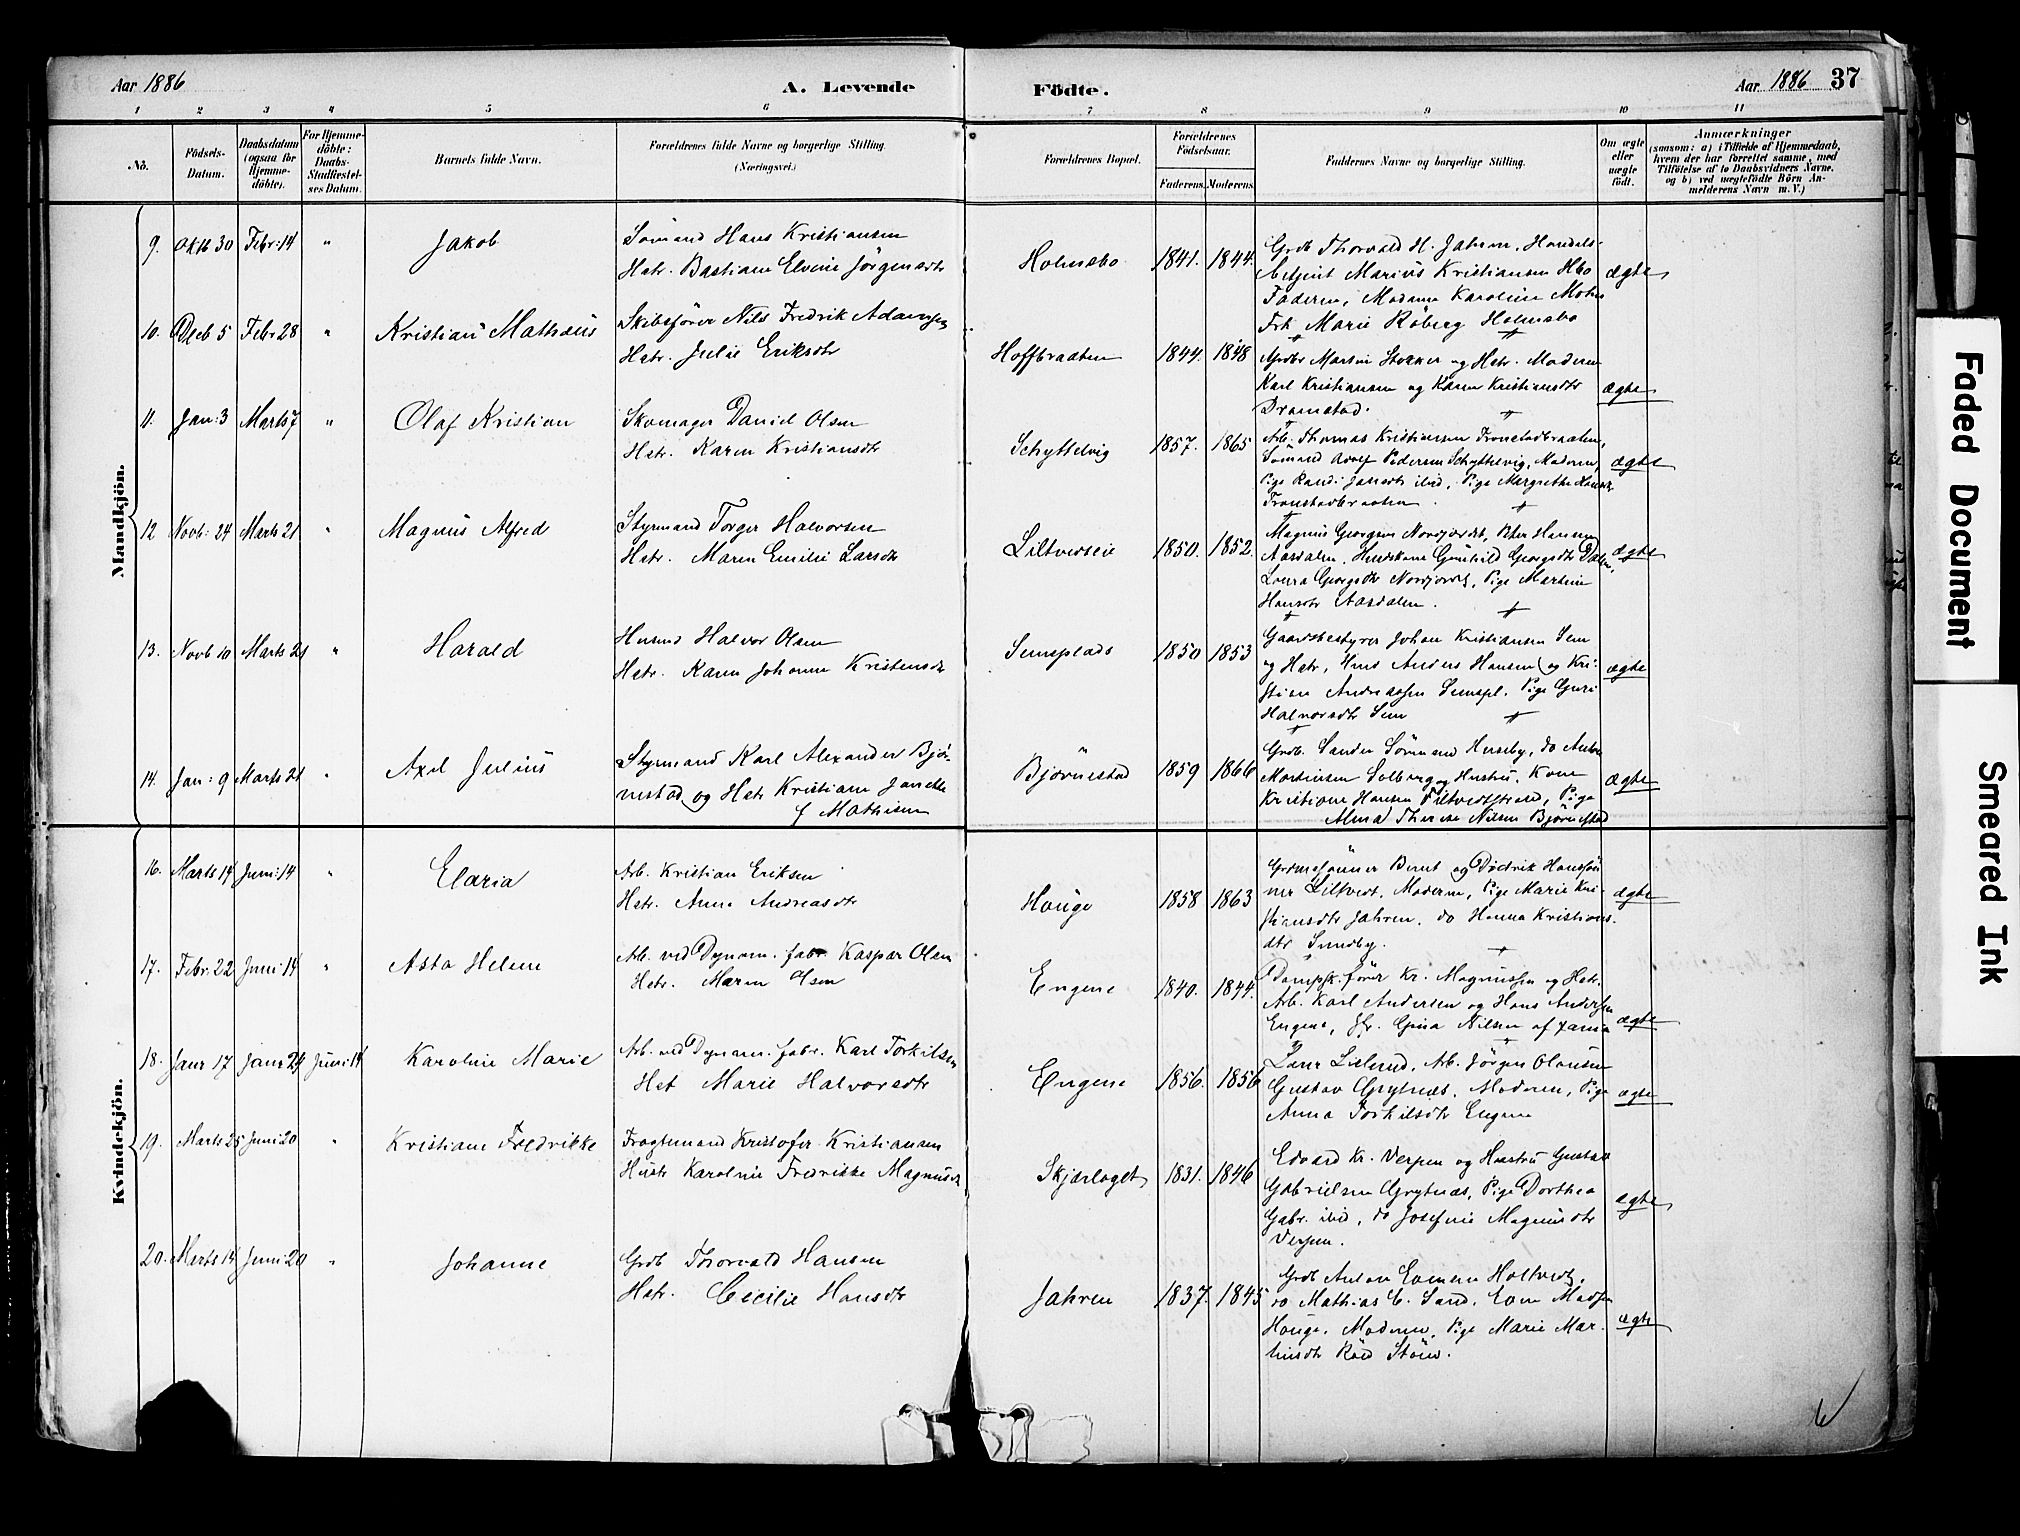 Aar 1886
A. Levende
Födte.
Aar 1886 37
1 2 3 4 5 6 7 8 9 10 11
No.
Födsels-
Datum.
Daabsdatum
(ogsaa for
Hjemme-
döbte).
For Hjemme-
döbte:
Daabs-
Stadfæstel-
ses Datum.
Barnets fulde Navn.
Forældrenes fulde Navne og borgerlige Stilling.
(Næringsvei.)
Forældrenes Bopæl.
Forældrenes
Födselsaar.
Faderens. Moderens.
Faddernes Navne og borgerlige Stilling.
Om ægte
eller
uægte
födt.
Anmærkninger
(saasom: a) i Tilfælde af Hjemmedaab,
hvem der har forrettet samme, med
Tilföielse af to Daabsvidners Navne,
og b) ved uægtefödte Börn An-
melderens Navn m. V.)
Mandkjön.
9. Oktb 30 Febr: 14 " Jakob
Sömand Hans Kristiansen
Hstr. Bastiane Elvine Jörgensdtr
Holmsbo 1841. 1844.
Grdb Thorvald H. Jahren, Handels-
betjent Marius Kristiansen Hbo
Faderen, Madame Karoline Mohn
Frk Marie Röberg Holmsbo
ægte
10. Dceb 5 Febr 28 " Kristian Mathæus
Skibsförer Nils Fredrik Adamsen
Hstr. Julie Eriksdtr
Hoffbraaten 1844. 1848
Grdbr Martin Stokker og Hstr. Moderen
Karl Kristiansen og Karen Kristiansdtr
Dramstad.
ægte
11. Jan: 3 Marts 7 " Olaf Kristian
Skomager Daniel Olsen
Hstr. Karen Kristiansdtr
Schyttelvig 1857. 1865
Arb. Thomas Kristiansen Tronstadbraaten,
Sömand Adolf Pedersen Schyttelvig, Moderen,
Pige Randi Jansdtr ibid, Pige Margrethe Hansdtr
Tronstadbraaten
ægte
12 Novb: 24 Marts 21 " Magnus Alfred
Styrmand Torger Halvorsen
Hstr. Maren Emilie Larsdtr
Liltvedseie 1850. 1852.
Magnus Georgsen Nordjordet, Peter Hansen
Aasdalen, Huuskone Gunhild Georgsdtr Dalen,
Laura Georgsdtr Nordjordet, Pige Martine
Hansdtr Aasdalen.
ægte
13. Novb 10 Marts 21 " Harald
Husmd Halvor Olsen
Hstr. Karen Johanne Kristensdtr
Semsplads 1850 1853
Gaardsbestyrer Johan Kristiansen Sem
og Hstr, Hmd Anders Hansen og Kri-
stian Andreassen Semspl. Pige Guri
Halvorsdtr Sem
ægte
14. Jan: 9 Marts 21 " Axel Julius
Styrmand Karl Alexander Björ-
nestad og Hstr Kristiane Janette
f Mathisen
Björnestad 1859 1866
Grdb. Sander Sörmand Huseby, do Anton
Martinsen Solberg og Hustru, Kone
Kristiane Hansen Filtvedtstrand, Pige
Alma Therese Nilsen Björnestad
ægte
Kvindekjön.
16. Marts 14 Juni: 14 " Elaria
Arb. Kristian Eriksen
Hstr. Anne Andreasdtr
Houge 1858 1863
Grdmdsönner Bernt og Diedrik Hanssön
ner Liltvedt, Moderen, Pige Marie Kri-
stiansdtr Jahren, do Hanna Kristians-
dtr Sundby.
ægte
17. Febr: 22 Juni: 14 " Asta Helene
Arb. ved Dynam. fabr Kaspar Olsen
Hstr. Maren Olsen
Engene 1840. 1844.
Dampsk. förer Kr. Magnussen og Hstr.
Arb. Karl Andersen og Hans Andersen
Engene, Jfr. Gina Nilsen af
ægte
18. Janr 17 Janr 24 Juni: 14 Karoline Marie
Arb. ved Dynam. fabr. Karl Torkilsen
Hst Marie Halvorsdtr
Engene 1856. 1856
Lars Lislerud, Arb. Jörgen Olausen
Gustav Grytnæs, Moderen, Pige
Anna Torkilsdtr Engene
ægte
19. Marts 25 Juni 20 " Kristiane Fredrikke
Fragtemand Kristofer Kristiansen
Hustr Karoline Fredrikke Magnusdtr
Skjærlaget 1831. 1846
Edvard Kr. Verpen og Hustru Gustav
Gabrielsen Grytnæs, Pige Dorthea
Gabr. ibid, do Josefine Magnusdtr
Verpen.
ægte
20. Marts 14 Juni 20 " Johanne
Grdb Thorvald Hansen
Hstr. Cecilie Hansdtr
Jahren 1837. 1845
Grdb Anton Evensen Holtvedt,
do Mathias C. Sand, Even Madsen
Houge, Moderen, Pige Marie Mar-
tinsdtr Röd Stöin.
ægte
Faded Document
Smeared Ink